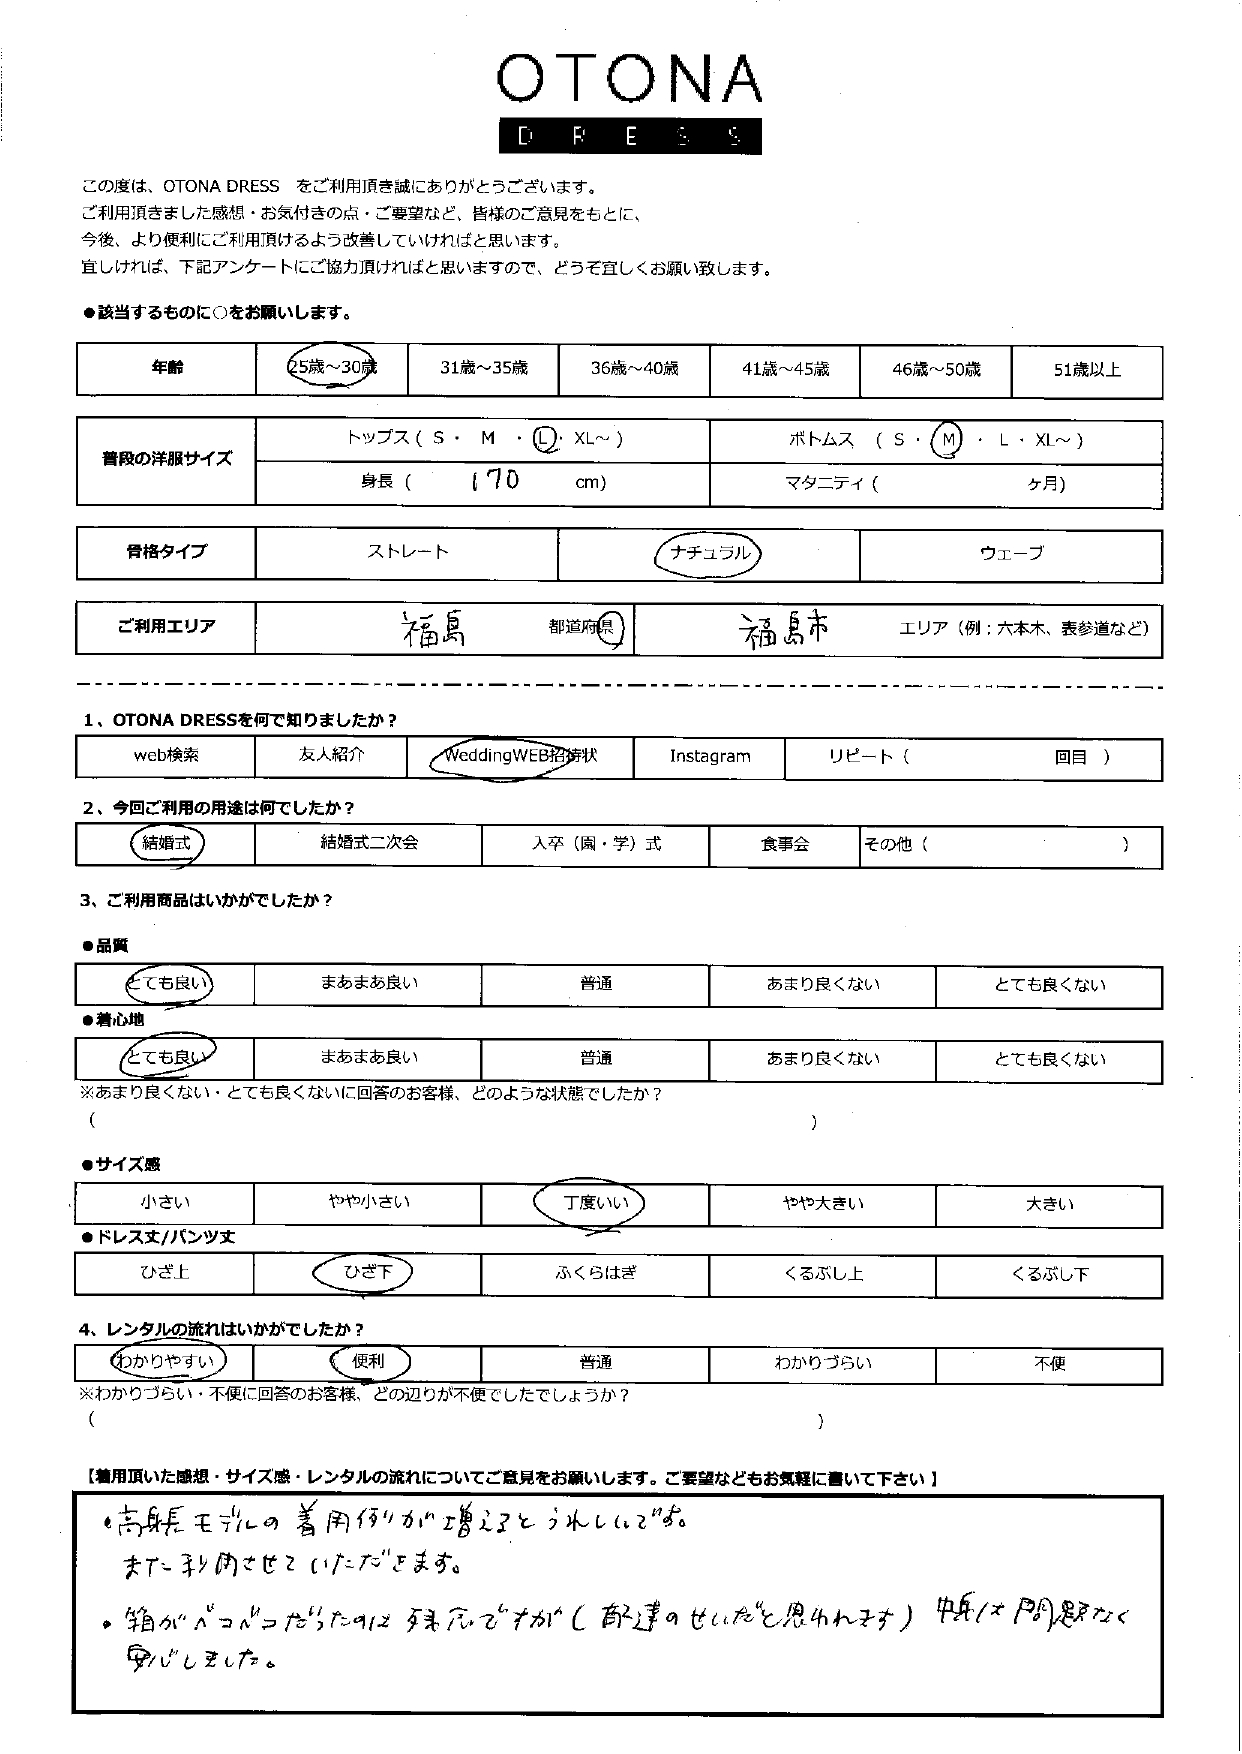 OTONA
DRESS
この度は、OTONA DRESS をご利用頂き誠にありがとうございます。
ご利用頂きました感想・お気付きの点・ご要望など、皆様のご意見をもとに、
今後、より便利にご利用頂けるよう改善していければと思います。
宜しければ、下記アンケートにご協力頂ければと思いますので、どうぞ宜しくお願い致します。
●該当するものに○をお願いします。
年齢 25歳～30歳 31歳～35歳 36歳～40歳 41歳～45歳 46歳～50歳 51歳以上
普段の洋服サイズ トップス ( S ・ M ・ L ・ XL～ ) ボトムス ( S ・ M ・ L ・ XL～ )
身長 ( 170 cm) マタニティ ( ヶ月)
骨格タイプ ストレート ナチュラル ウェーブ
ご利用エリア 福島 都道府県 福島市 エリア（例：六本木、表参道など）
1、OTONA DRESSを何で知りましたか？
web検索 友人紹介 WeddingWEB招待状 Instagram リピート（ 回目 ）
2、今回ご利用の用途は何でしたか？
結婚式 結婚式二次会 入卒（園・学）式 食事会 その他（ ）
3、ご利用商品はいかがでしたか？
●品質
とても良い まあまあ良い 普通 あまり良くない とても良くない
●着心地
とても良い まあまあ良い 普通 あまり良くない とても良くない
※あまり良くない・とても良くないに回答のお客様、どのような状態でしたか？
( )
●サイズ感
小さい やや小さい 丁度いい やや大きい 大きい
●ドレス丈/パンツ丈
ひざ上 ひざ下 ふくらはぎ くるぶし上 くるぶし下
4、レンタルの流れはいかがでしたか？
わかりやすい 便利 普通 わかりづらい 不便
※わかりづらい・不便に回答のお客様、どの辺りが不便でしたでしょうか？
( )
【着用頂いた感想・サイズ感・レンタルの流れについてご意見をお願いします。ご要望などもお気軽に書いて下さい 】
・高身長モデルの着用例が増えるとうれしいです。
また利用させていただきます。
・箱がベコベコだったのは残念ですが（配達のせいだと思われます）中身は問題なく
安心しました。